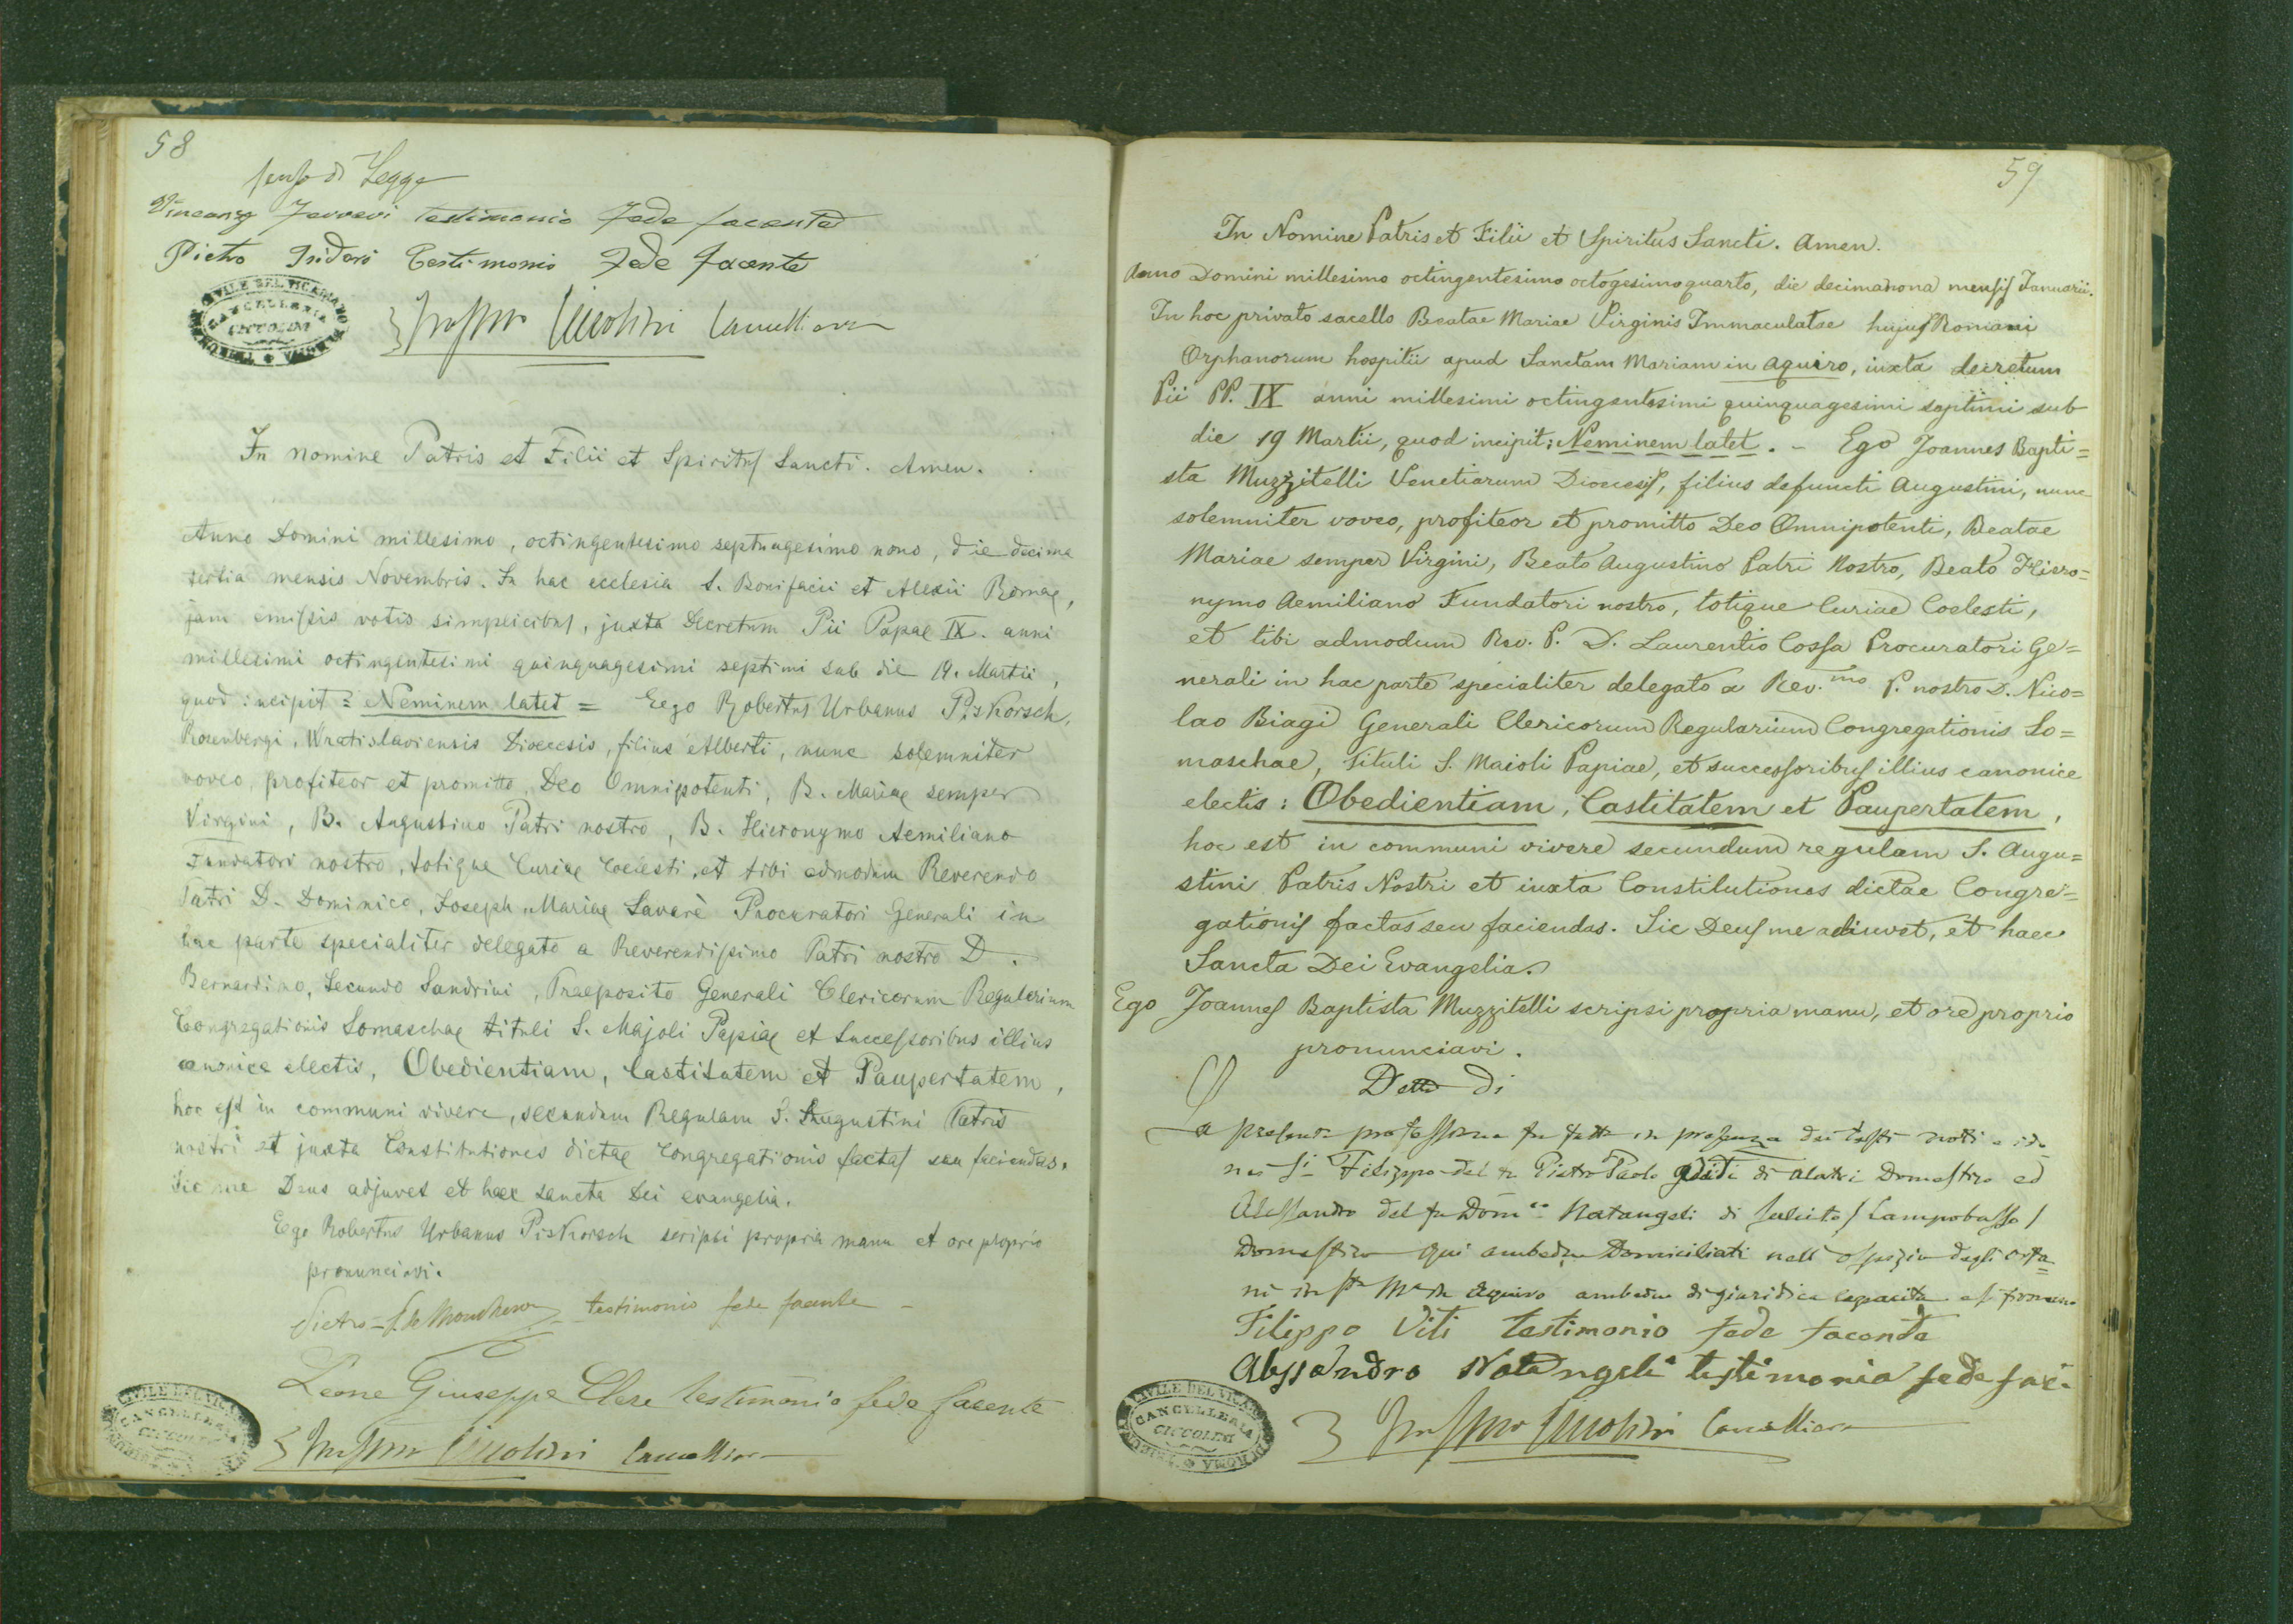 58
senso di Legge
testimonio fede facente
Pietro Isidori testimonio fede facente
CIVILE DEL VICARIATO
CANCELLERIA
CICCOLINI
ROMA
Ciccolini Cancelliere
In nomine Patris et Filii et Spiritus Sancti. Amen.
Anno Domini millesimo, octingentesimo septuagesimo nono, die decima
tertia mensis Novembris. In hac ecclesia S. Bonifacii et Alexii Romae,
jam emissis votis simplicibus, juxta Decretum Pii Papae IX. anni
millesimi octingentesimi quinquagesimi septimi sub die 19. Martii,
quod incipit = Neminem latet = Ego Robertus Urbanus Piskorsch,
Rosenbergi, Wratislaviensis Dioecesis, filius Alberti, nunc solemniter
voveo, profiteor et promitto, Deo Omnipotenti, B. Mariae semper
Virgini, B. Augustino Patri nostro, B. Hieronymo Aemiliano
Fundatori nostro, totique Curiae Coelesti, et tibi admodum Reverendo
Patri D. Dominico, Joseph, Mariae Savarè Procuratori Generali in
hac parte specialiter delegato a Reverendissimo Patri nostro D.
Bernardino, Secundo Sandrini, Praeposito Generali Clericorum Regularium
Congregationis Somaschae tituli S. Majoli Papiae et Successoribus illius
canonice electis, Obedientiam, Castitatem et Paupertatem,
hoc est in communi vivere, secundum Regulam S. Augustini Patris
nostri et juxta Constitutiones dictae Congregationis factas seu faciendas.
Sic me Deus adjuvet et haec sancta Dei evangelia.
Ego Robertus Urbanus Piskorsch scripsi propria manu et ore proprio
pronunciavi.
Pietro testimonio fede facente
Leone Giuseppe Clere testimonio fede facente
CIVILE DEL VICARIATO
CANCELLERIA
CICCOLINI
Ciccolini Cancelliere
59
In Nomine Patris et Filii et Spiritus Sancti. Amen.
Anno Domini millesimo octingentesimo octogesimo quarto, die decimanona mensis Januarii.
In hoc privato sacello Beatae Mariae Virginis Immaculatae hujus Romani
Orphanorum hospitii apud Sanctam Mariam in Aquiro, iuxta decretum
Pii PP. IX anni millesimi octingentesimi quinquagesimi septimi sub
die 19 Martii, quod incipit: Neminem latet. - Ego Joannes Bapti=
sta Muzzitelli Venetiarum Dioecesis, filius defuncti Augustini, nunc
solemniter voveo, profiteor et promitto Deo Omnipotenti, Beatae
Mariae semper Virgini, Beato Augustino Patri Nostro, Beato Hiero=
nymo Aemiliano Fundatori nostro, totique Curiae Coelesti,
et tibi admodum Rev. P. D. Laurentio Cossa Procuratori Ge=
nerali in hac parte specialiter delegato a Rev.mo P. nostro D. Nico=
lao Biagi Generali Clericorum Regularium Congregationis So=
maschae, tituli S. Maioli Papiae, et successoribus illius canonice
electis: Obedientiam, Castitatem et Paupertatem,
hoc est in communi vivere secundum regulam S. Augu=
stini Patris Nostri et iuxta Constitutiones dictae Congre=
gationis factas seu faciendas. Sic Deus me adiuvet, et haec
Sancta Dei Evangelia.
Ego Joannes Baptista Muzzitelli scripsi propria manu, et ore proprio
pronunciavi.
Detto di
La presente professione fu fatta in presenza dei testi noti e ido
nei Filippo del fu Pietro Paolo di Alatri Domestico ed
Alessandro del fu Dom.co Natangeli di Salcito / Campobasso /
Domestico qui ambedue Domiciliati nell'ospizio degli orfa=
ni in Aquiro ambedue di giuridica capacità
Filippo Viti testimonio fede facente
Alessandro Natangeli testimonio fede
CIVILE DEL VICARIATO
CANCELLERIA
CICCOLINI
ROMA
Ciccolini Cancelliere